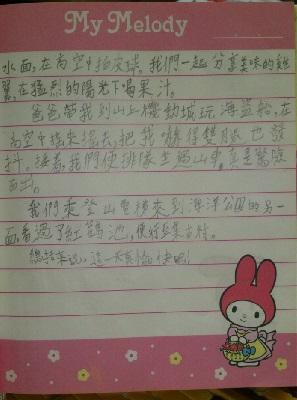 My Melody
水面,在高空中拍皮球。我們一起分享美味的雞
翼,在猛烈的陽光下喝果汁。
爸爸帶我到山上機動城玩海盜船,在
高空中搖來搖去,把我嚇得雙腳也發
抖。接着,我們便排隊坐過山車,真是驚險
百出。
我們乘登山電梯來到海洋公園的另一
面,看過了紅鶴池,便到集古村。
總括來說,這一天真愉快呢!